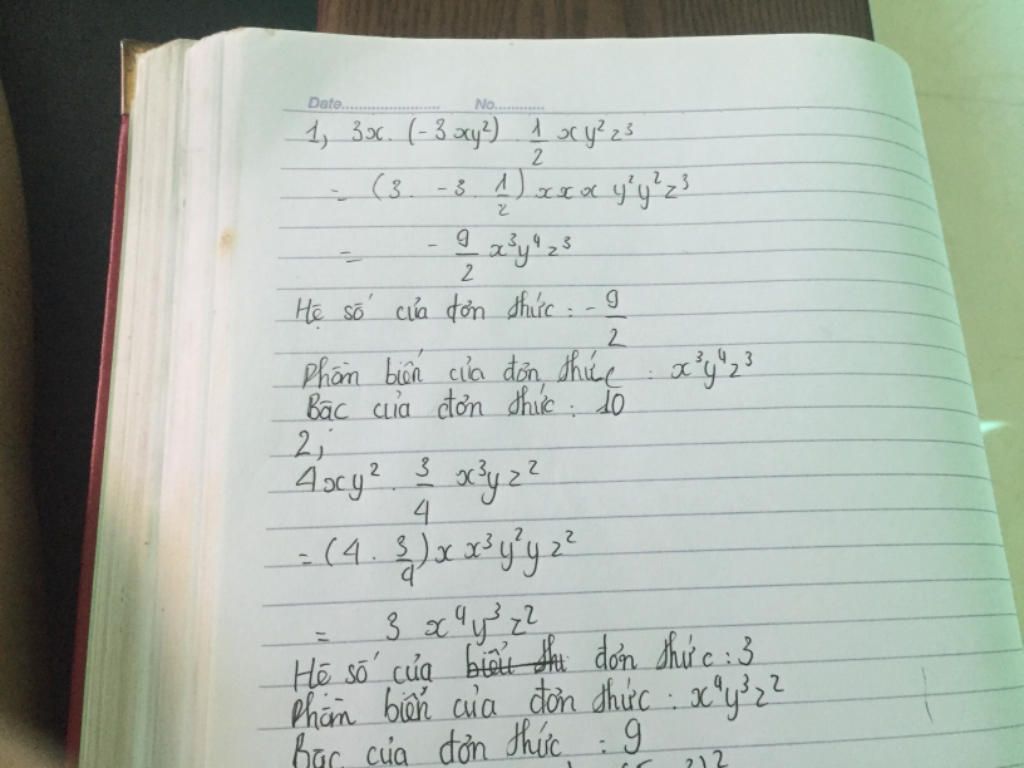 Date............ No............
1, 3x. (-3xy²) 1/2 xy²z³
= (3. -3. 1/2) x x x y²y²z³
= -9/2 x³y⁴z³
Hệ số của đơn thức : -9/2
Phần biến của đơn thức : x³y⁴z³
Bậc của đơn thức : 10
2,
4xy². 3/4 x³yz²
= (4. 3/4) x x³y²yz²
= 3 x⁴y³z²
Hệ số của biểu thứ đơn thức : 3
Phần biến của đơn thức : x⁴y³z²
Bậc của đơn thức : 9